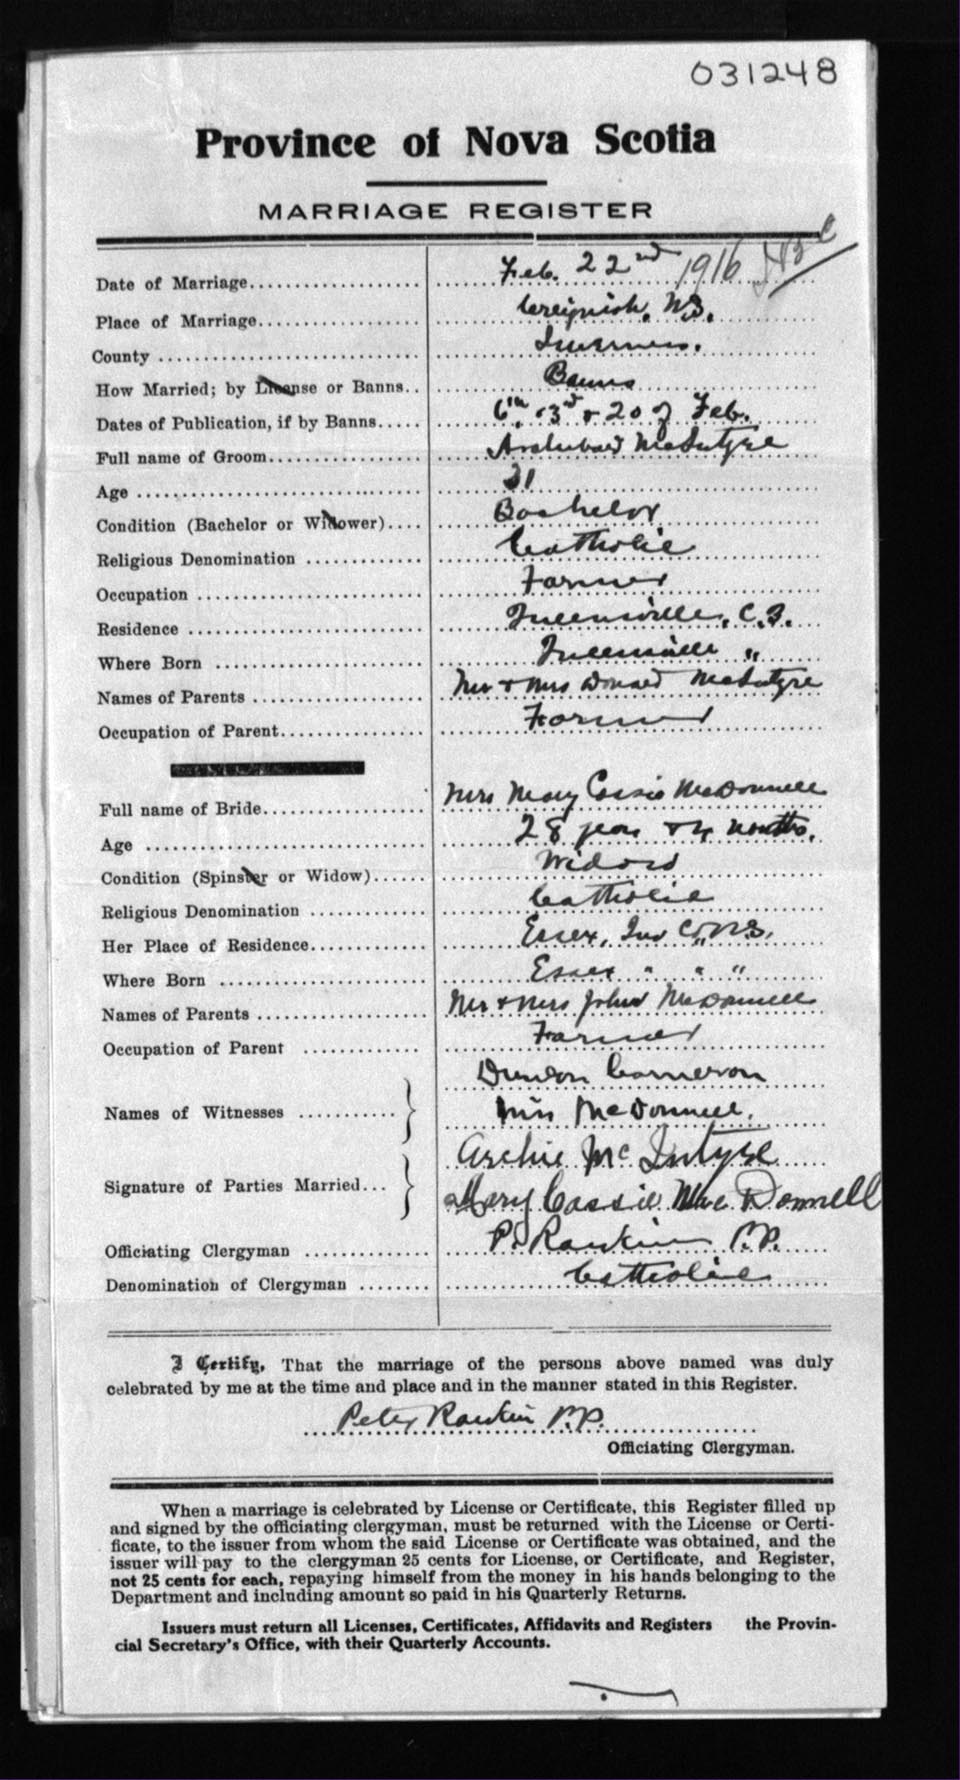 031248
Province of Nova Scotia
MARRIAGE REGISTER
Date of Marriage.................... Feb. 22nd 1916
Place of Marriage................... Creignish, N.S.
County ............................. Inverness.
How Married; by License or Banns.. Banns
Dates of Publication, if by Banns..... 6th, 13rd & 20 of Feb.
Full name of Groom.................. Archibald McIntyre
Age ................................ 31
Condition (Bachelor or Widower).... Bachelor
Religious Denomination ............. Catholic
Occupation ......................... Farmer
Residence .......................... C.B.
Where Born ......................... "
Names of Parents ................... Mr & Mrs Donald McIntyre
Occupation of Parent................ Farmer
Full name of Bride.................. Mrs Mary Cassie McDonnell
Age ................................ 28 years & 4 months.
Condition (Spinster or Widow)...... Widow
Religious Denomination ............. Catholic
Her Place of Residence.............. Essex, Inv Co, N.S.
Where Born ......................... Essex " " "
Names of Parents ................... Mr & Mrs John McDonnell
Occupation of Parent ............... Farmer
Names of Witnesses ........... } Duncan Cameron
Miss McDonnell.
Signature of Parties Married... } Archie McIntyre
Mary Cassie Mac Donnell
Officiating Clergyman .............. P. Rankin P.P.
Denomination of Clergyman ........ Catholic
I Certify, That the marriage of the persons above named was duly
celebrated by me at the time and place and in the manner stated in this Register.
Peter Rankin P.P.
Officiating Clergyman.
When a marriage is celebrated by License or Certificate, this Register filled up
and signed by the officiating clergyman, must be returned with the License or Certi-
ficate, to the issuer from whom the said License or Certificate was obtained, and the
issuer will pay to the clergyman 25 cents for License, or Certificate, and Register,
not 25 cents for each, repaying himself from the money in his hands belonging to the
Department and including amount so paid in his Quarterly Returns.
Issuers must return all Licenses, Certificates, Affidavits and Registers the Provin-
cial Secretary's Office, with their Quarterly Accounts.